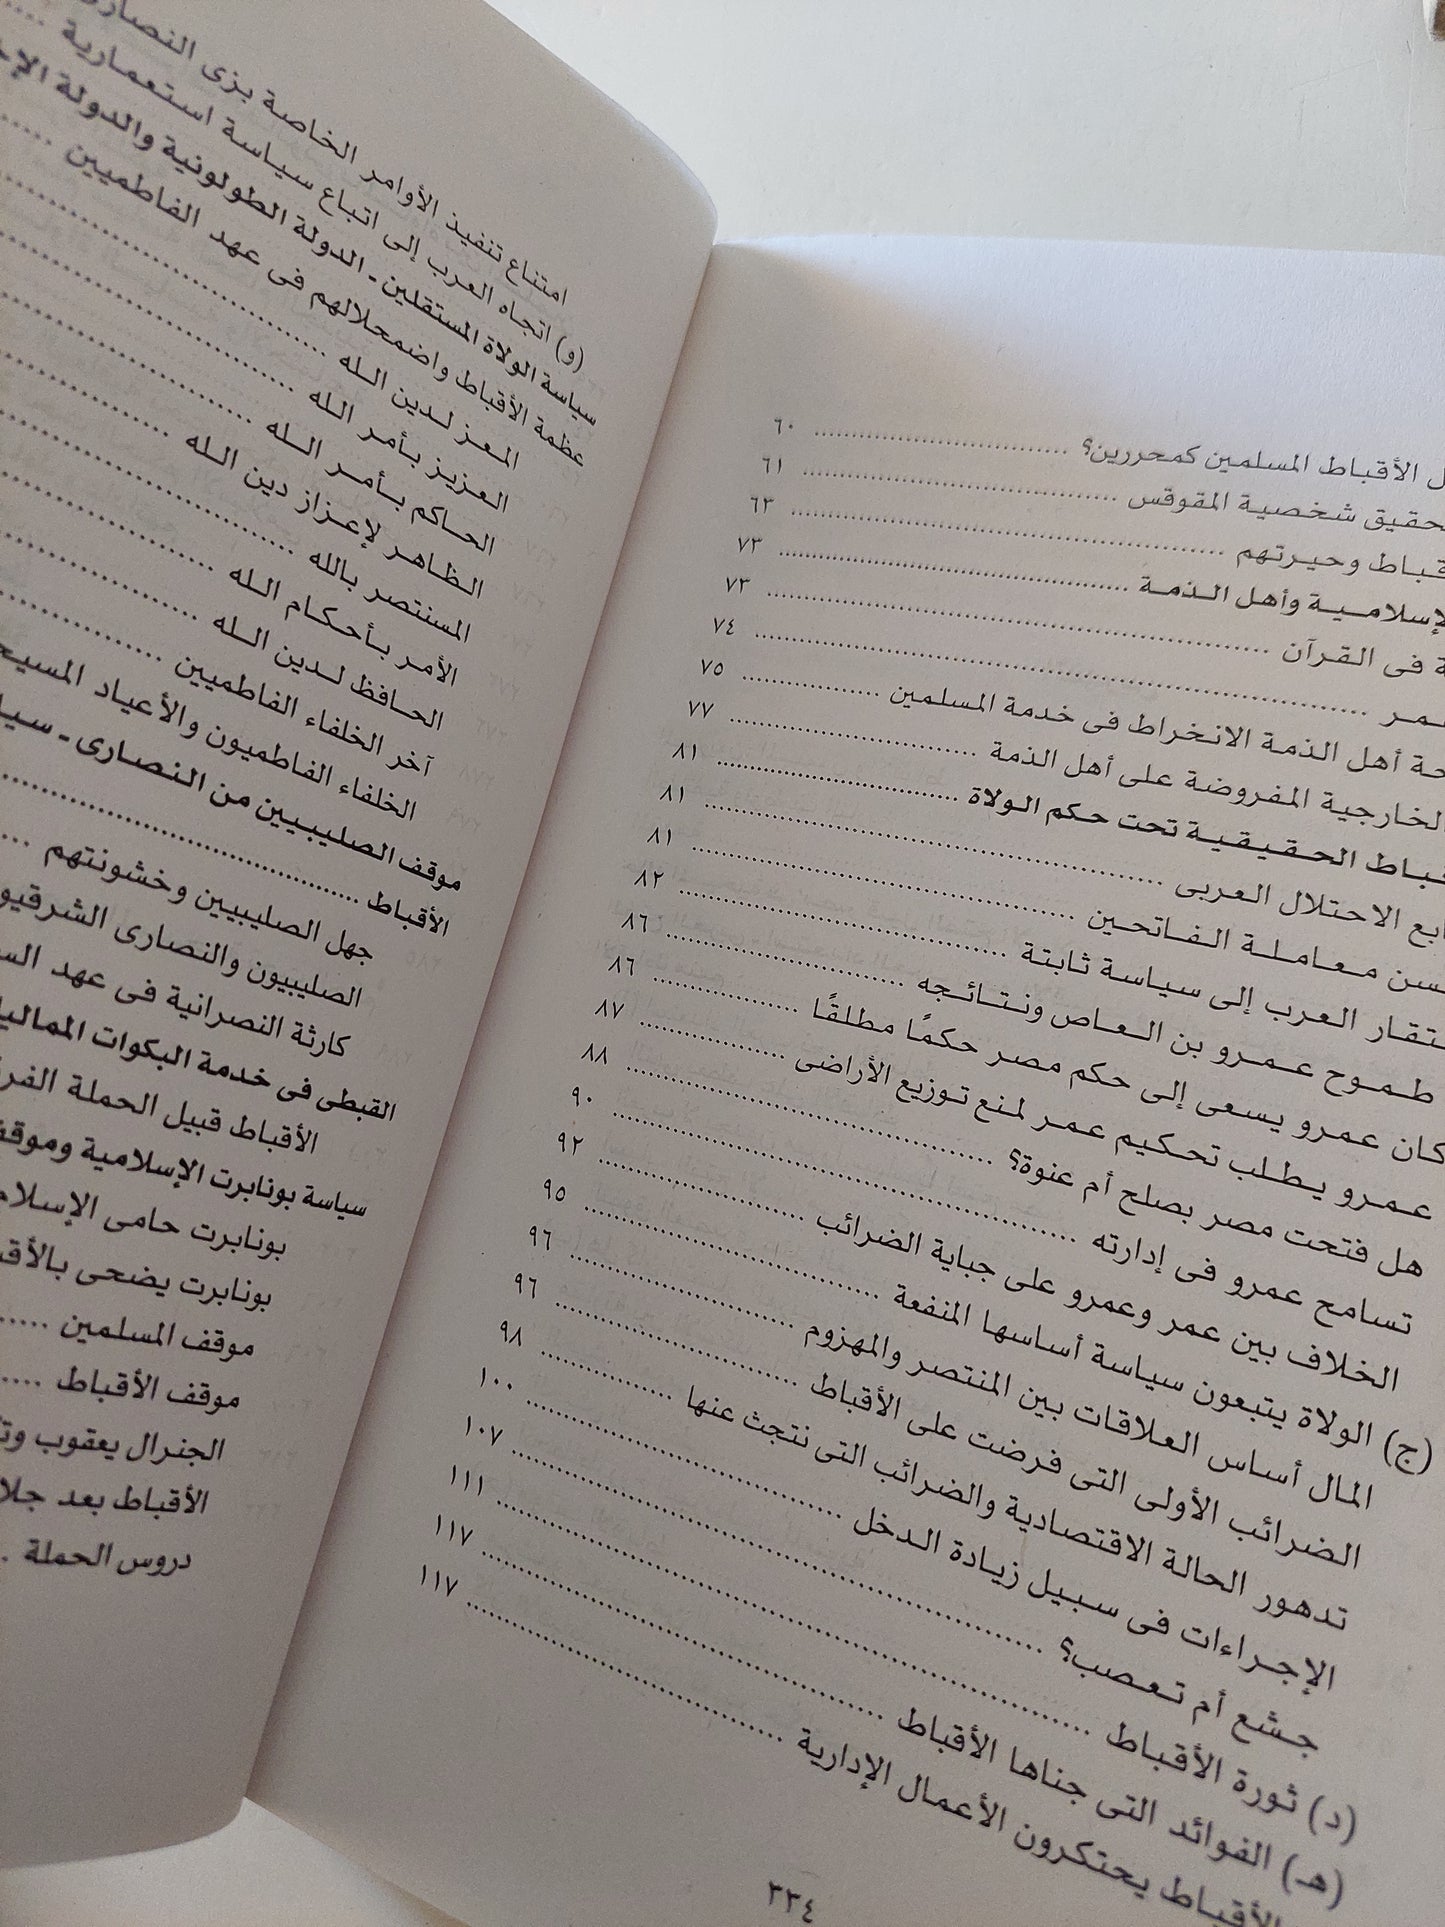 ل الأقباط المسلمين كمحررين؟ ٦٠
حقيق شخصية المقوقس ٦١
قباط وحيرتهم ٦٣
لإسلامية وأهل الذمة ٧٣
ة فى القرآن ٧٣
مر ٧٤
حة أهل الذمة الانخراط فى خدمة المسلمين ٧٥
لخارجية المفروضة على أهل الذمة ٧٧
باط الحقيقية تحت حكم الولاة ٨١
ابع الاحتلال العربى ٨١
سن معاملة الفاتحين ٨١
تقار العرب إلى سياسة ثابتة ٨٢
طموح عمرو بن العاص ونتائجه ٨٦
كان عمرو يسعى إلى حكم مصر حكمًا مطلقًا ٨٦
عمرو يطلب تحكيم عمر لمنع توزيع الأراضى ٨٧
هل فتحت مصر بصلح أم عنوة؟ ٨٨
تسامح عمرو فى إدارته ٩٠
الخلاف بين عمر وعمرو على جباية الضرائب ٩٢
(ج) الولاة يتبعون سياسة أساسها المنفعة ٩٥
المال أساس العلاقات بين المنتصر والمهزوم ٩٦
الضرائب الأولى التى فرضت على الأقباط ٩٦
تدهور الحالة الاقتصادية والضرائب التى نتجث عنها ٩٨
الإجراءات فى سبيل زيادة الدخل ١٠٠
جشع أم تعصب؟ ١٠٧
(د) ثورة الأقباط ١١١
(هـ) الفوائد التى جناها الأقباط ١١٧
الأقباط يحتكرون الأعمال الإدارية ١١٧
٣٣٤
امتناع تنفيذ الأوامر الخاصة بزى النصارى
(و) اتجاه العرب إلى اتباع سياسة استعمارية
سياسة الولاة المستقلين - الدولة الطولونية والدولة الإخ
عظمة الأقباط واضمحلالهم فى عهد الفاطميين
المعز لدين الله
العزيز بأمر الله
الحاكم بأمر الله
الظاهر لإعزاز دين الله
المستنصر بالله
الأمر بأحكام الله
الحافظ لدين الله
آخر الخلفاء الفاطميين
الخلفاء الفاطميون والأعياد المسيح
موقف الصليبيين من النصارى - سيا
الأقباط
جهل الصليبيين وخشونتهم
الصليبيون والنصارى الشرقيو
كارثة النصرانية فى عهد الس
القبطى فى خدمة البكوات المماليا
الأقباط قبيل الحملة الفر
سياسة بونابرت الإسلامية وموقف
بونابرت حامى الإسلام
بونابرت يضحى بالأقب
موقف المسلمين
موقف الأقباط
الجنرال يعقوب وتأ
الأقباط بعد جلا
دروس الحملة